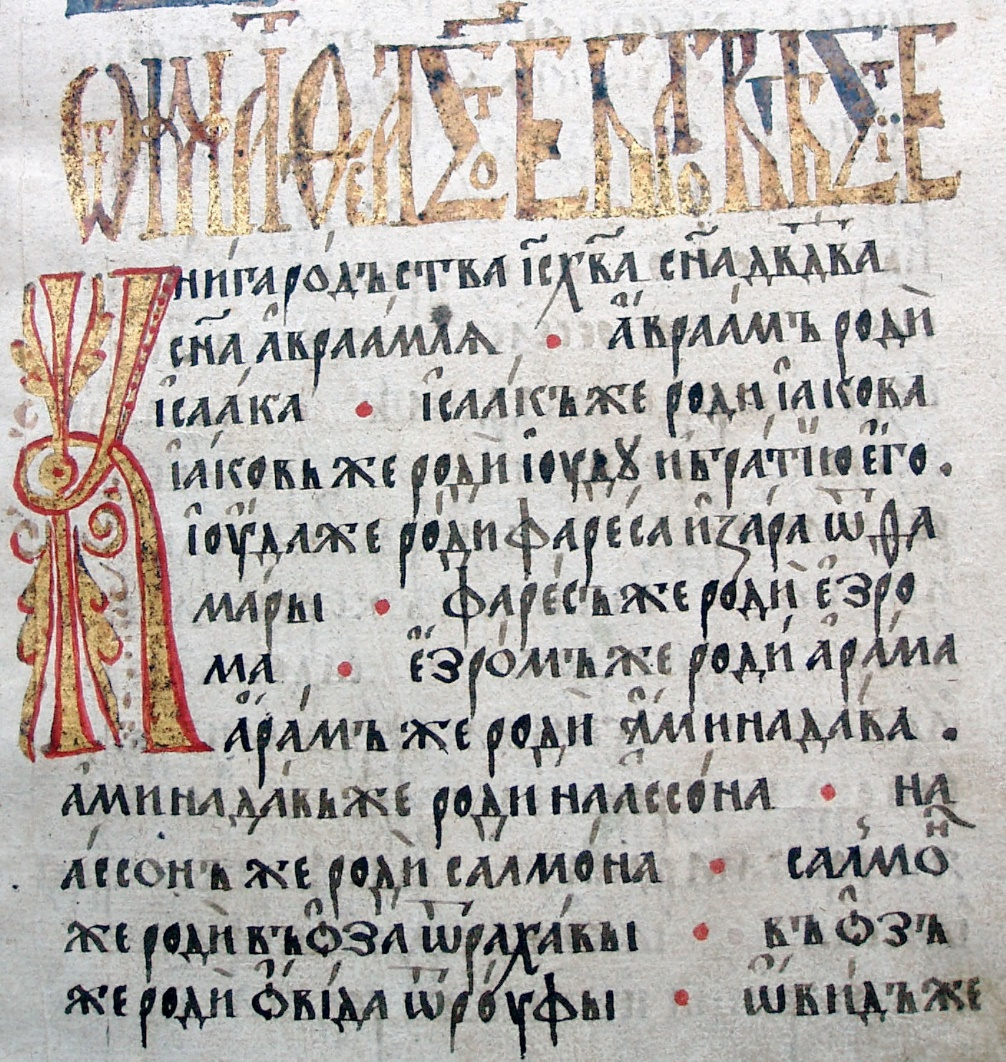 Ѿ маѳеа ст҃ое бл҃говѣствїе
Книга родъства і҃с х҃ва сн҃а дв҃два
сн҃а авраамлѧ • авраамъ роди
ісаака • ісаакъ же роди іакова
іаковь же роди іоудꙋ и братїю его.
іоуда же роди фареса и зара ѿ ѳа
мары • фаресъ же роди езро
ма • езромъ же роди арама
арамъ же роди аминадава .
аминадавь же роди наассона • на
ассонъ же роди салмона • салмон
же роди въоза ѿ рахавы • въозъ
же роди овіда ѿ роуфы • ѡвидъ же